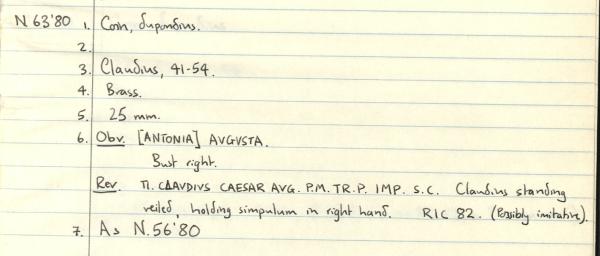 N 63'80 1. Coin, dupondius.
2.
3. Claudius, 41-54.
4. Brass.
5. 25 mm.
6. Obv. [ANTONIA] AVGVSTA.
Bust right.
Rev. TI. CLAVDIVS CAESAR AVG. P.M. TR.P. IMP. S.C. Claudius standing
veiled, holding simpulum in right hand. RIC 82. (Possibly imitative).
7. As N.56'80